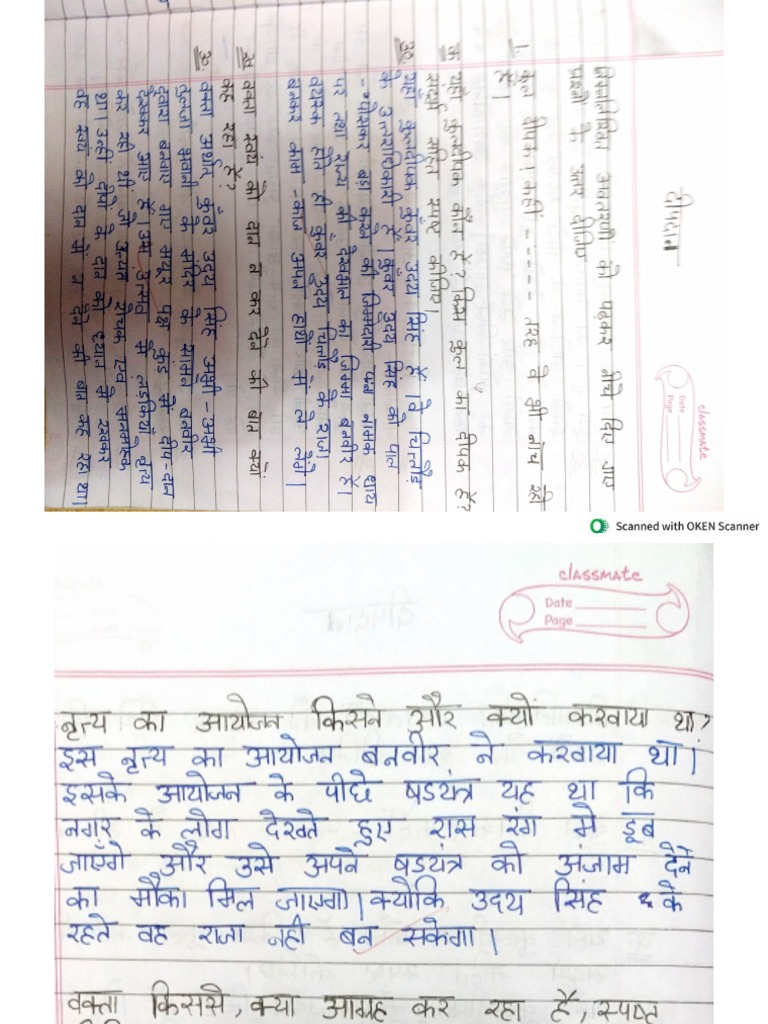 classmate
Date
Page
दीपदान
निम्नलिखित अवतरणों को पढ़कर नीचे दिए गए
प्रश्नों के उत्तर दीजिए
1. कुल दीपक। कहीं ---- तरह वे भी नाच रही
हैं।
क. यहाँ कुलदीपक कौन हैं? किस कुल का दीपक हैं?
संदर्भ सहित स्पष्ट कीजिए।
उ० यहाँ कुलदीपक कुंवर उदय सिंह हैं। वे चित्तौड़
के उत्तराधिकारी हैं। कुंवर उदय सिंह को पाल
-पोसकर बड़ा करने की जिम्मेदारी पन्ना नामक धाय
पर तथा राज्य की देखभाल का जिम्मा बनवीर हैं।
वयस्क होते ही कुंवर उदय चित्तौड़ के राजा
बनकर काम-काज अपने हाथों में ले लेंगे।
ख. वक्ता स्वयं को दान न कर देने की बात क्यों
कह रहा हैं?
उ० वक्ता अर्थात् कुंवर उदय सिंह अभी-अभी
तुलजा भवानी के मंदिर के सामने बनवीर
द्वारा बनवाए गए मयूर पक्ष कुंड में दीप-दान
देखकर आए हैं। उस उत्सव में लड़कियाँ नृत्य
कर रही थीं जो अत्यंत रोचक एवं मनमोहक
था। उन्हीं दीपों के दान को ध्यान में रखकर
वह स्वयं को दान में न देने की बात कह रहा था।
Scanned with OKEN Scanner
classmate
Date
Page
नृत्य का आयोजन किसने और क्यों करवाया था?
इस नृत्य का आयोजन बनवीर ने करवाया था।
इसके आयोजन के पीछे षडयंत्र यह था कि
नगर के लोग देखते हुए रास रंग मे डूब
जाएँगे और उसे अपने षडयंत्र को अंजाम देने
का मौका मिल जाएगा। क्योकि उदय सिंह के
रहते वह राजा नही बन सकेगा।
वक्ता किससे, क्या आग्रह कर रहा है, स्पष्ट